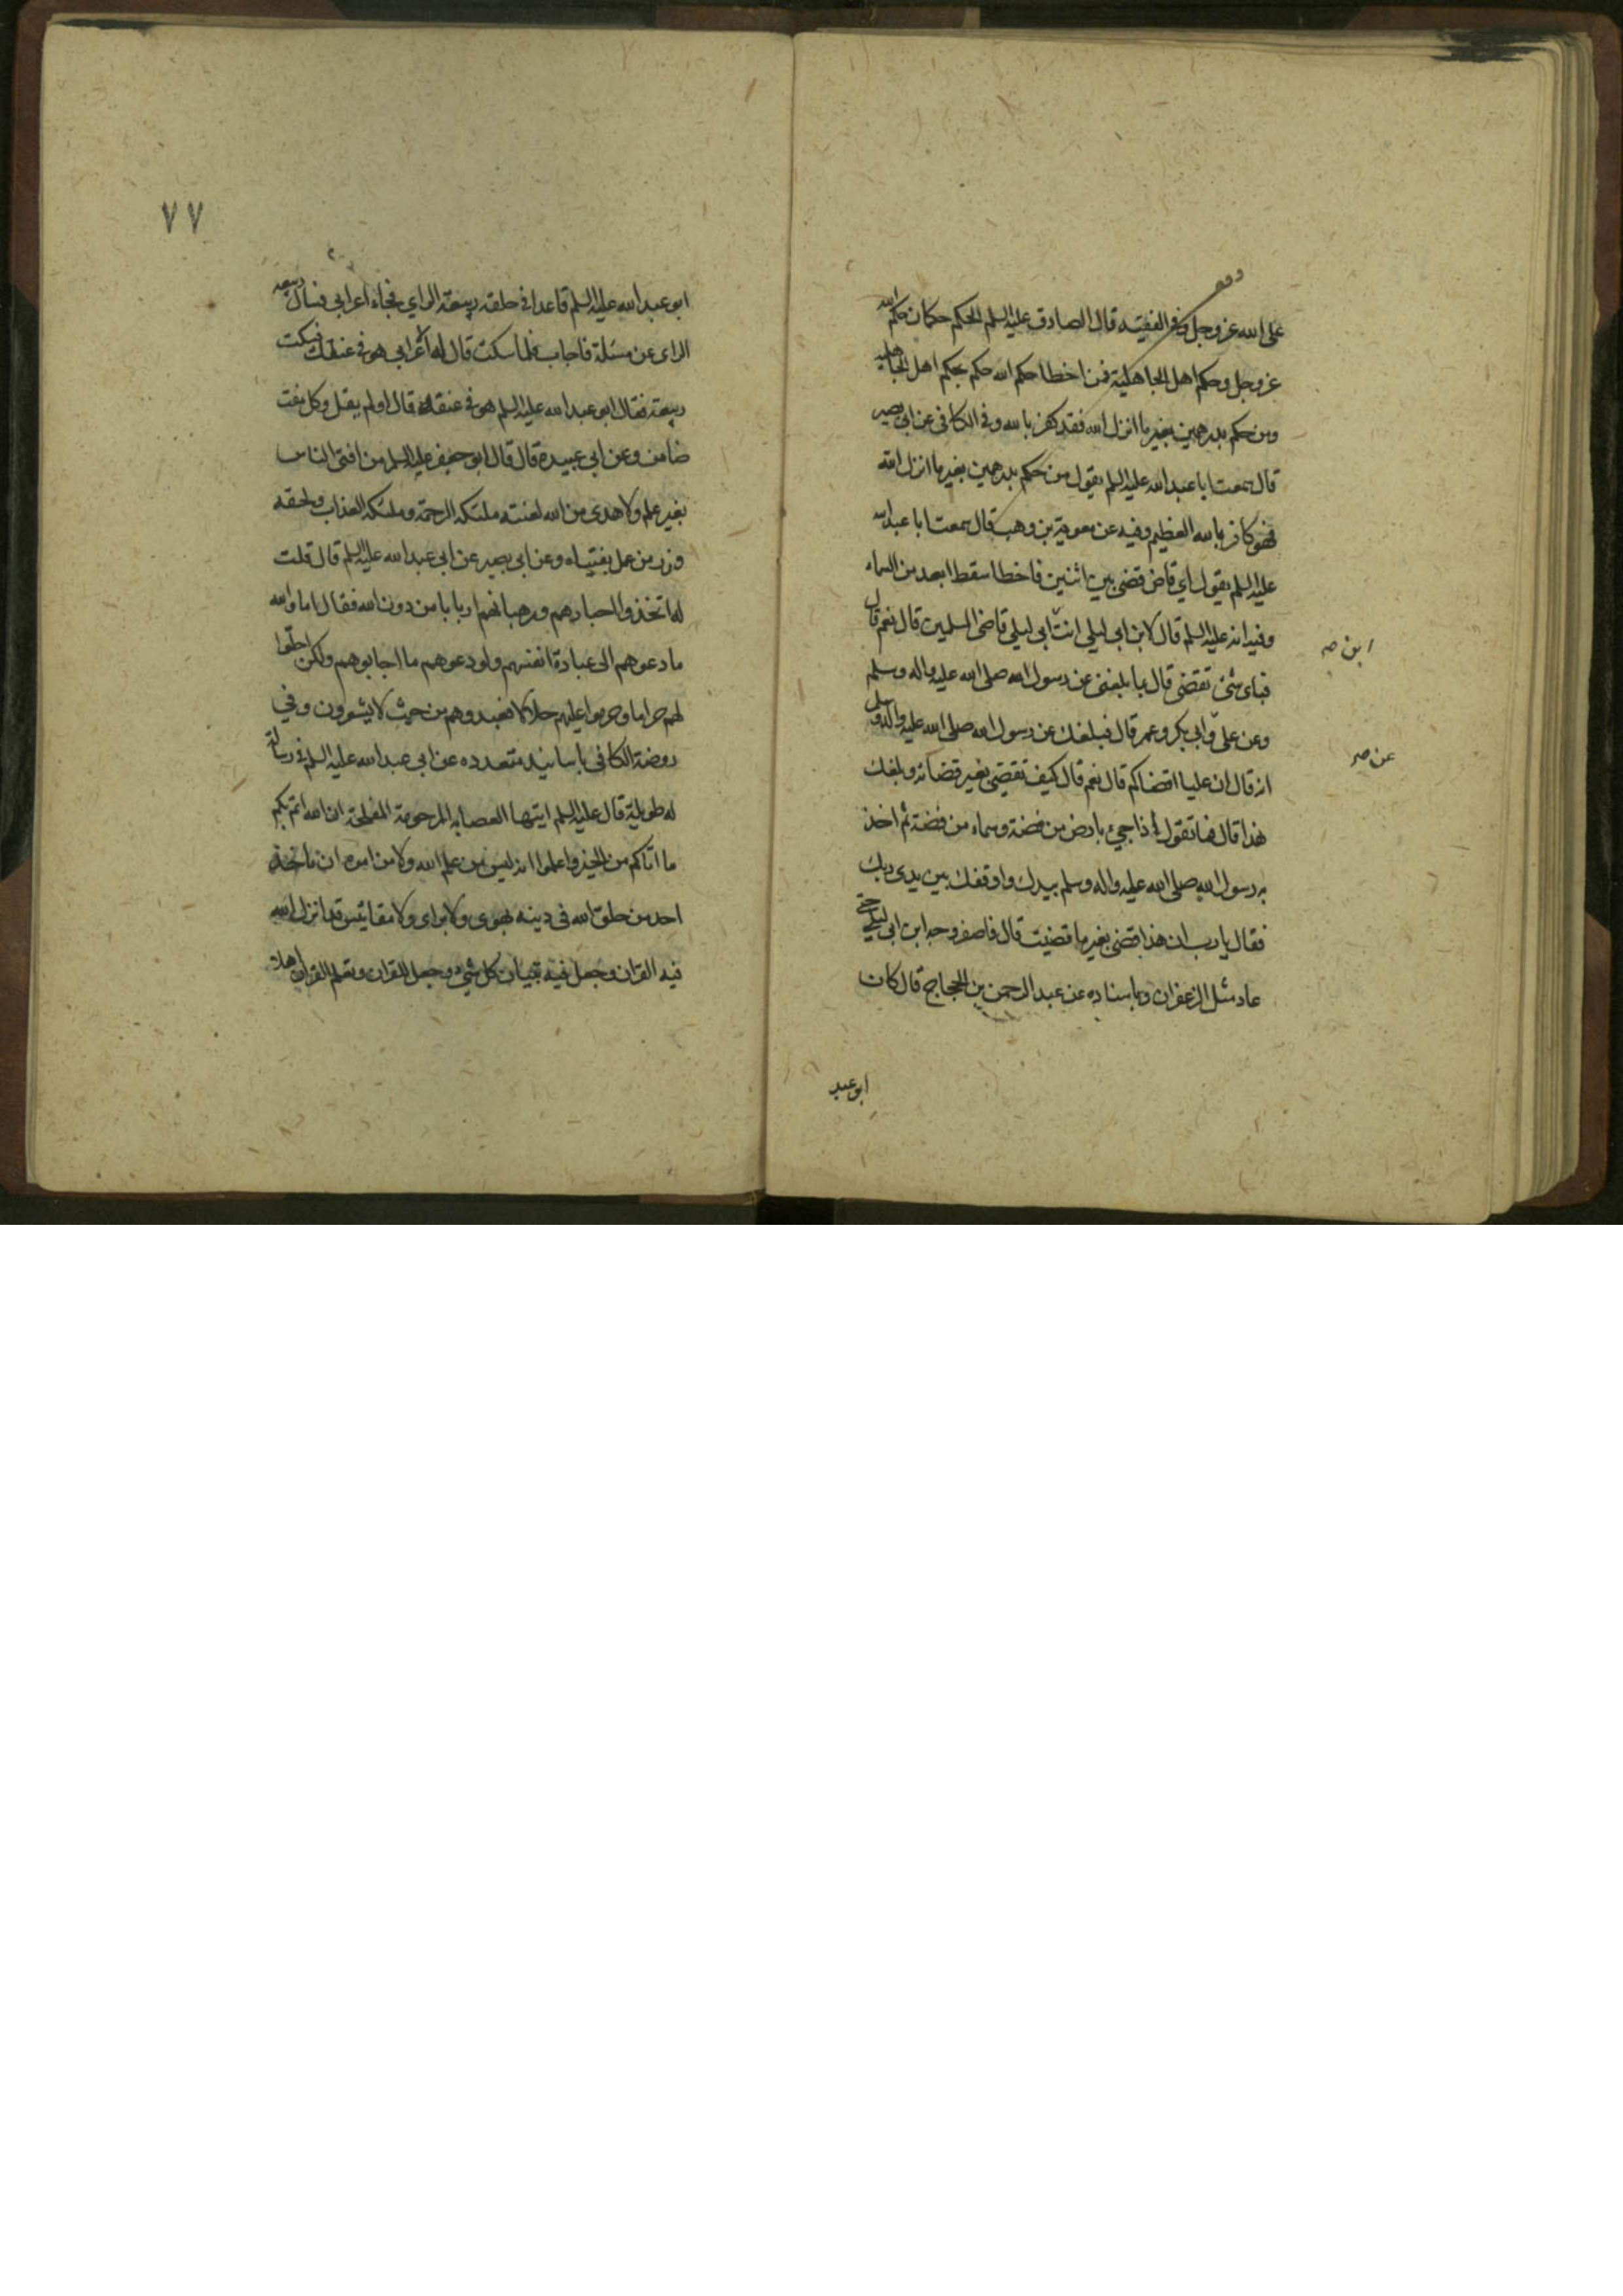 على الله عز وجل وفي الفقيه قال الصادق عليه السلم الحكم حكمان حكم الله
عز وجل وحكم اهل الجاهلية فمن اخطا حكم الله حكم بحكم اهل الجاهلية
ومن حكم بدرهمين بغير ما انزل الله فقد كفر بالله وفي الكافي عن ابي بصير
قال سمعت ابا عبد الله عليه السلم يقول من حكم بدرهمين بغير ما انزل الله
فهو كافر بالله العظيم وفيه عن معوية بن وهب قال سمعت ابا عبد الله
عليه السلم يقول اي قاض قضى بين اثنين فاخطا سقط ابعد من السماء
وفيه انه عليه السلم قال لابن ابي ليلى انت ابي ليلى قاضي المسلمين قال نعم قال
ابن صه
فباي شئ تقضي قال بما بلغني عن رسول الله صلى الله عليه واله وسلم
وعن علي و ابي بكر وعمر قال فبلغك عن رسول الله صلى الله عليه واله وسلم
عن صه
انه قال ان عليا اقضاكم قال نعم قال كيف تقضي بغير قضائه وبلغك
هذا قال فما تقول اذا جئ بارض من فضة وسماء من فضة ثم اخذ
رسول الله صلى الله عليه واله وسلم بيدك واوقفك بين يدى ربك
فقال يا رب ان هذا قضى بغير ما قضيت قال فاصفر وجه ابن ابي ليلى حتى
عاد مثل الزعفران وباسناده عن عبد الرحمن بن الحجاج قال كان
ابو عبد
٧٧
ابو عبد الله عليه السلم قاعدا في حلقة ربيعة الراي فجاء اعرابي فسال ربيعه
الراى عن مسئلة فاجاب فلما سكت قال له الاعرابي هو في عنقك فسكت
ربيعة فقال ابو عبد الله عليه السلم هو في عنقه قال اولم يقل وكل مفت
ضامن وعن ابي عبيدة قال قال ابو جعفر عليه السلم من افتى الناس
بغير علم ولا هدى من الله لعنته ملئكه الرحمة وملئكه العذاب ولحقه
وزر من عمل بفتياه وعن ابي بصير عن ابي عبد الله عليه السلم قال قلت
له اتخذوا احبارهم ورهبانهم اربابا من دون الله فقال اما والله
ما دعوهم الى عبادة انفسهم ولو دعوهم ما اجابوهم ولكن احلوا
لهم حراما وحرموا عليهم حلالا فعبدوهم من حيث لا يشعرون وفي
روضة الكافي باسانيد متعدده عن ابي عبد الله عليه السلم في رسالة
له طويلة قال عليه السلم ايتها العصابه المرحومة المفلحة ان الله اتم لكم
ما اتاكم من الخير واعلموا انه ليس من علم الله ولا من امره ان ياخذ
احد من خلق الله في دينه بهوى ولا براى ولا مقائيس قد انزل الله
فيه القران وجعل فيه تبيان كل شئ وجعل للقران وتعلم القران اهلا